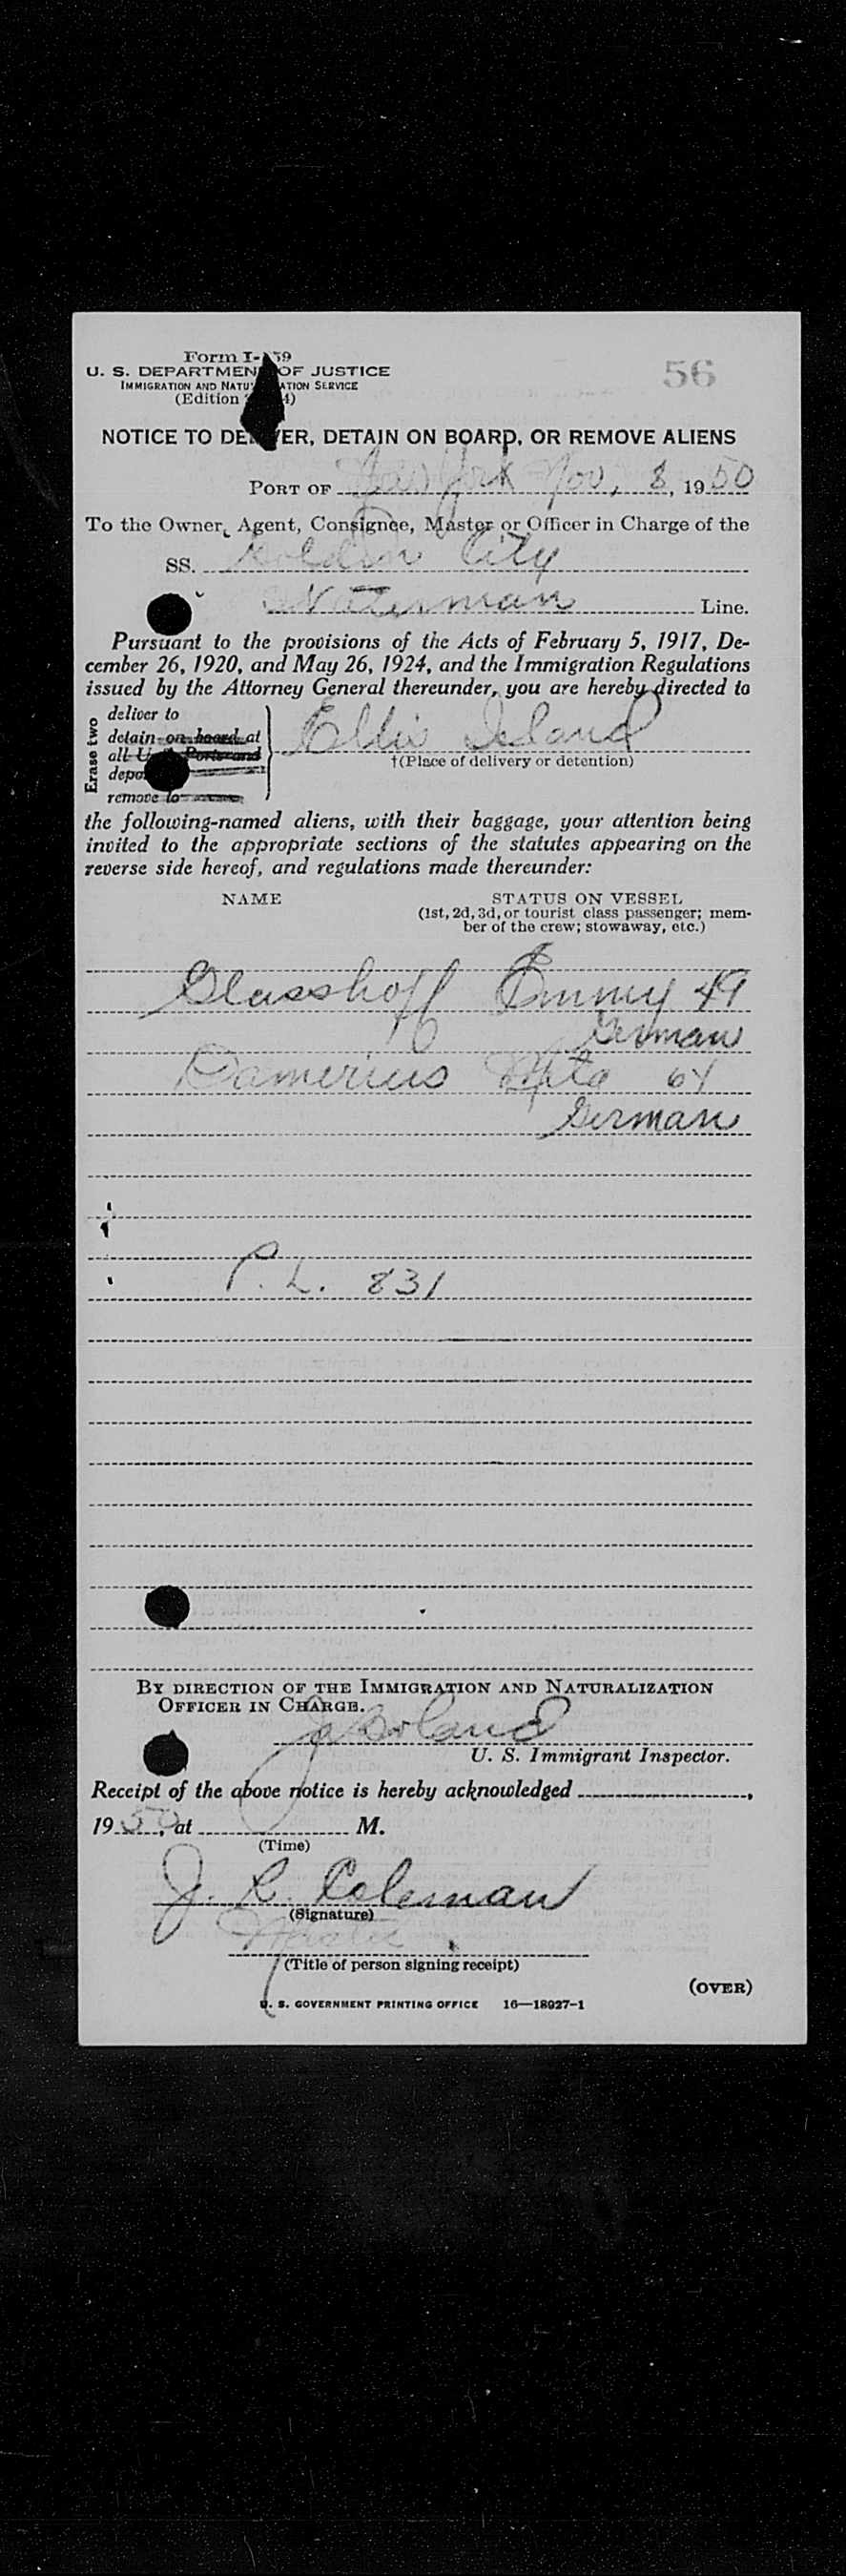 Form I-259
56
U. S. DEPARTMENT OF JUSTICE
IMMIGRATION AND NATURALIZATION SERVICE
(Edition 4)
NOTICE TO DELIVER, DETAIN ON BOARD, OR REMOVE ALIENS
PORT OF New York Nov, 8, 1950
To the Owner, Agent, Consignee, Master or Officer in Charge of the
SS. Golden City
Waterman Line.
Pursuant to the provisions of the Acts of February 5, 1917, De-
cember 26, 1920, and May 26, 1924, and the Immigration Regulations
issued by the Attorney General thereunder, you are hereby directed to
Erase two
deliver to
detain on board at
all U. S. Ports and
remove to
Ellis Island
†(Place of delivery or detention)
the following-named aliens, with their baggage, your attention being
invited to the appropriate sections of the statutes appearing on the
reverse side hereof, and regulations made thereunder:
NAME STATUS ON VESSEL
(1st, 2d, 3d, or tourist class passenger; mem-
ber of the crew; stowaway, etc.)
Glasshoff Emmy 49
German
Damerius 64
German
P. L. 831
BY DIRECTION OF THE IMMIGRATION AND NATURALIZATION
OFFICER IN CHARGE.
U. S. Immigrant Inspector.
Receipt of the above notice is hereby acknowledged,
1950, at M.
(Time)
J. L. Coleman
(Signature)
Master
(Title of person signing receipt)
(OVER)
U. S. GOVERNMENT PRINTING OFFICE 16—18927-1